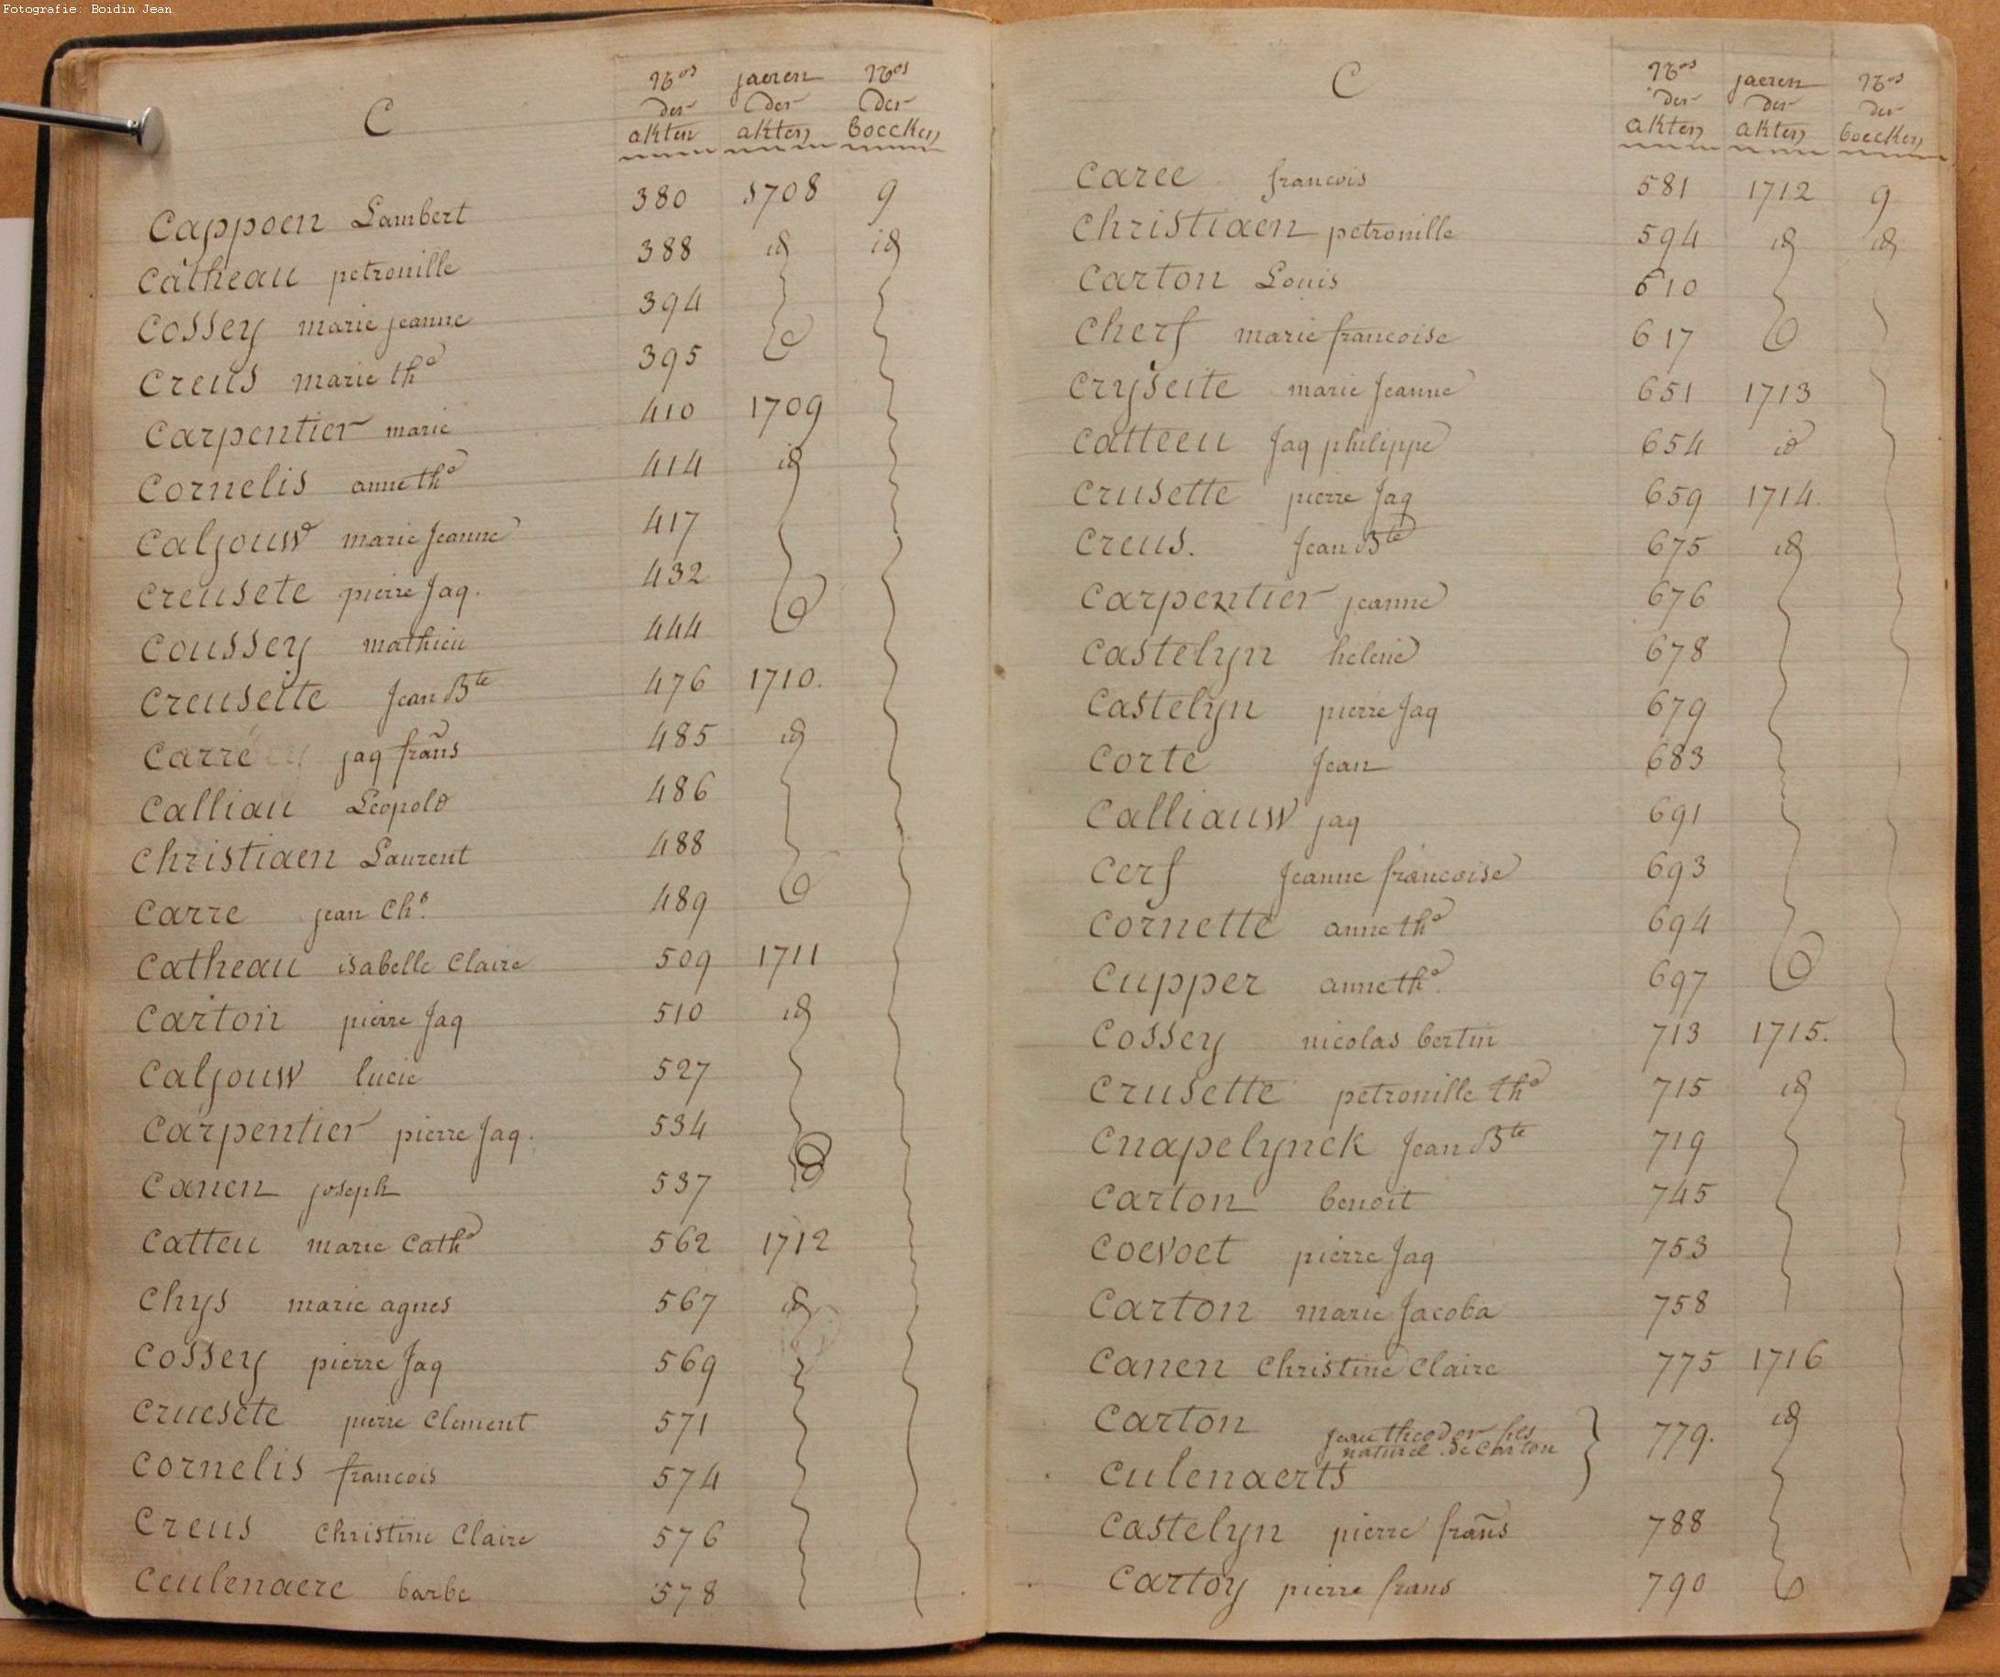 Fotografie: Boidin Jean
C
Nos jaeren Nos
der der der
akten akten boecken
Cappoen Lambert 380 1708 9
Catheau petronille 388 id id
Cossey marie jeanne 394
Creus marie the 395
Carpentier marie 410 1709
Cornelis anne the 414 id
Caljouw marie Jeanne 417
Creusete pierre Jaq. 432
Coussey mathieu 444
Creuseite Jean Bte 476 1710.
Carre jaq frans 485 id
Calliau Leopold 486
Christiaen Laurent 488
Carre jean Chs. 489
Catheau isabelle Claire 509 1711
Carton pierre Jaq 510 id
Caljouw lucie 527
Carpentier pierre Jaq. 534
Canen joseph 537
Catteu marie Cathe 562 1712
Chys marie agnes 567 id
Cossey pierre Jaq 569
Cruesete pierre Clement 571
Cornelis francois 574
Creus Christine Claire 576
Ceulenaere barbe 578
C
Nos jaeren Nos
der der der
akten akten boecken
Caree francois 581 1712 9
Christiaen petronille 594 id id
Carton Louis 610
Cherf marie francoise 617
Cryseite marie Jeanne 651 1713
Catteeu Jaq philippe 654 id
Crusette pierre Jaq 659 1714.
Creus. Jean Bte 675 id
Carpentier jeanne 676
Castelyn helene 678
Castelyn pierre Jaq 679
Corte Jean 683
Calliauw jaq 691
Cerf Jeanne francoise 693
Cornette anne the 694
Cupper anne the. 697
Cossey nicolas bertin 713 1715.
Crusette petronille the 715 id
Cnapelynck Jean Bte 719
Carton benoit 745
Coevoet pierre Jaq 753
Carton marie Jacoba 758
Canen Christine Claire 775 1716
Carton jean theodor fils 779. id
naturel de Carton
Culenaerts
Castelyn pierre frans 788
Cartoy pierre frans 790